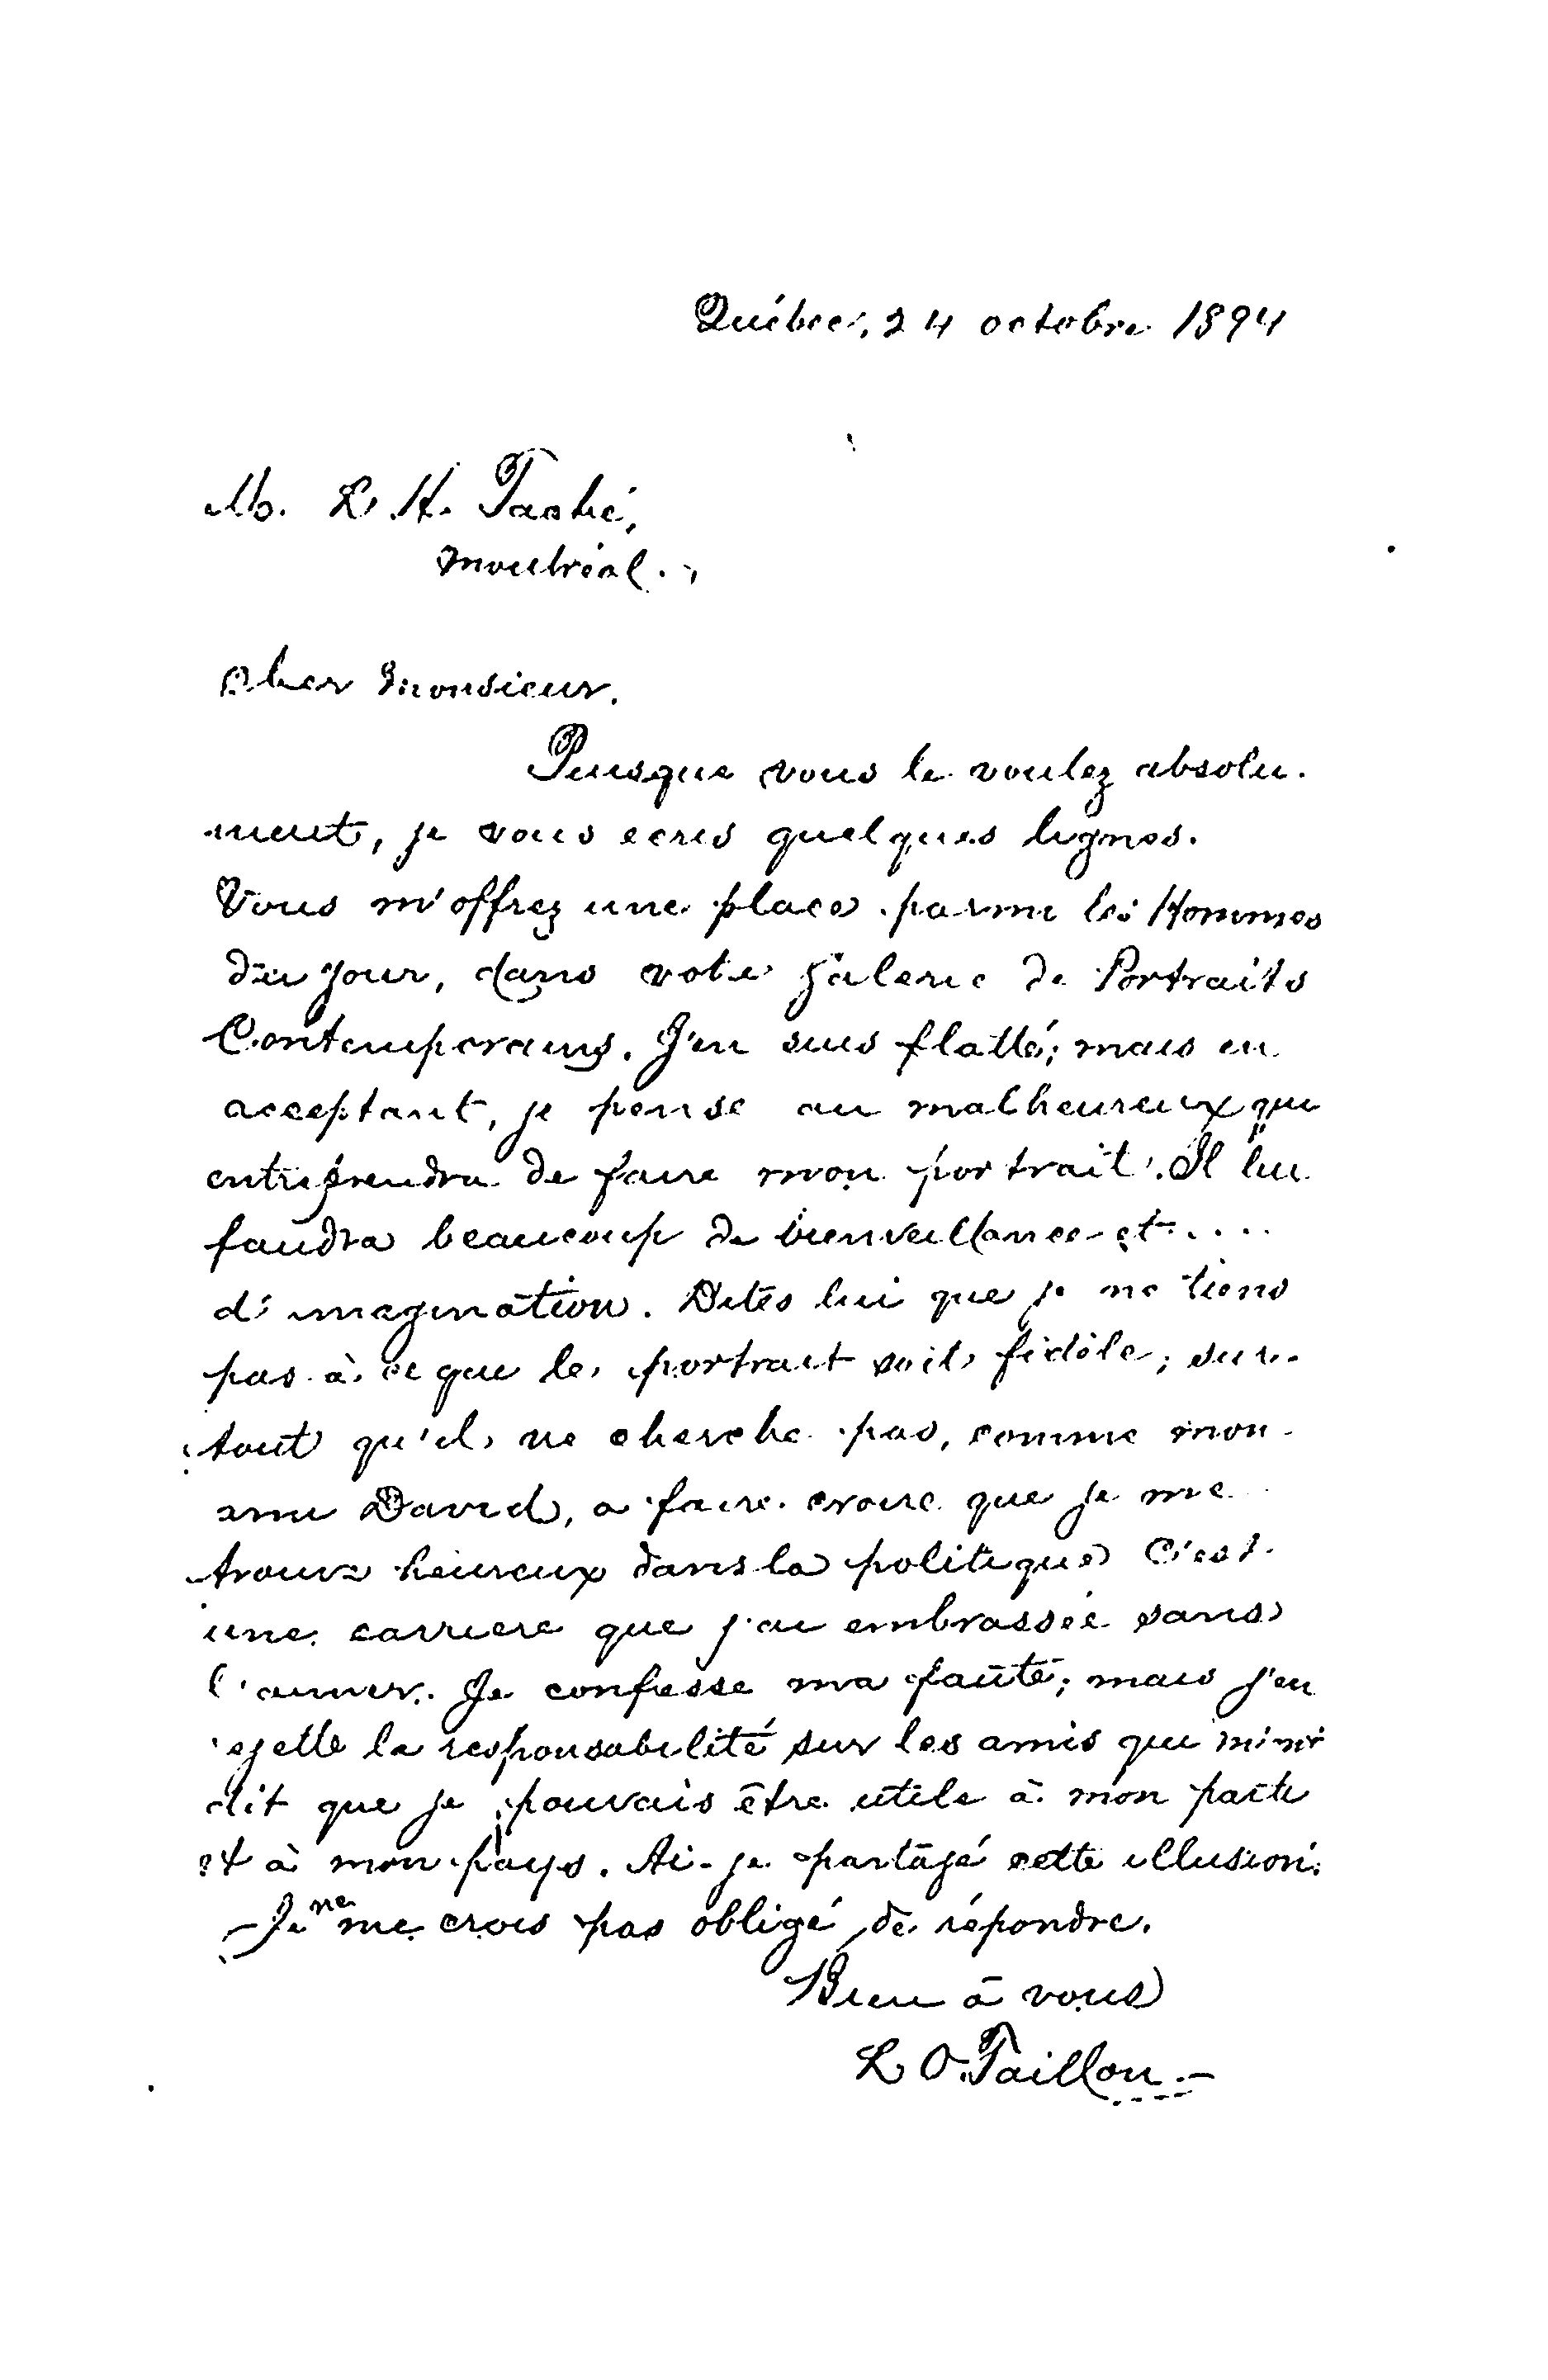 Québec, 24 octobre 1894
M. L. H. Taché,
Montréal.
Cher Monsieur.
Puisque vous le voulez absolu-
ment, je vous ecris quelques lignes.
Vous m'offrez une place parmi les Hommes
du jour, dans votre Galerie de Portraits
Contemporains. J'en suis flatté; mais en
acceptant, je pense au malheureux qui
entreprendra de faire mon portrait. Il lui
faudra beaucoup de bienveillance et ....
d'imagination. Dites lui que je ne tiens
pas à ce que le portrait soit fidèle; sur-
tout qu'il ne cherche pas, comme mon
ami David, a faire croire que je me
trouve heureux dans la politique C'est
une carriere que j'ai embrassée sans
l'aimer. Je confesse ma faute; mais j'en
rejette la responsabilité sur les amis qui m'ont
dit que je pouvais être utile à mon parti
et à mon pays. Ai-je partagé cette illusion.
Je ne me crois pas obligé de répondre.
Bien à vous
L O. Taillon.-